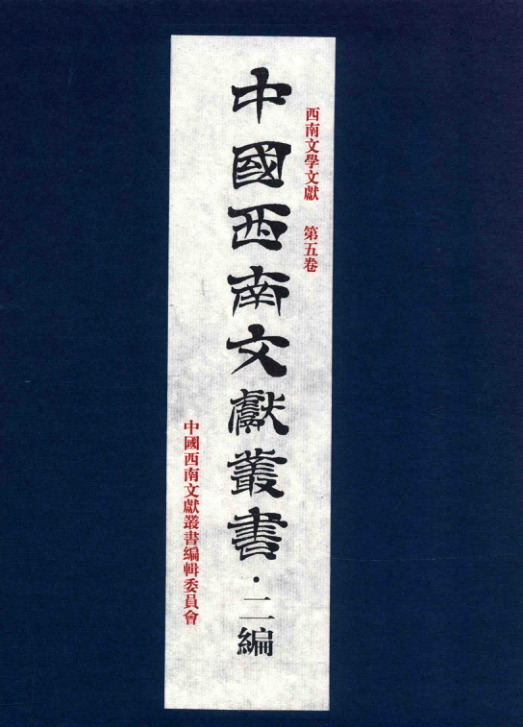 西南文學文獻 第五卷
中國西南文獻叢書·二編
中國西南文獻叢書編輯委員會